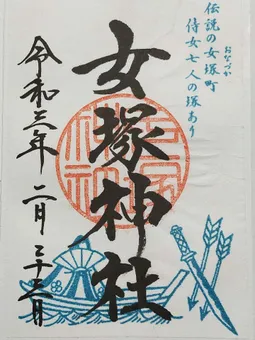 伝説の女塚町
おなづか
侍女七人の塚あり
女塚神社
令和三年二月二十二日